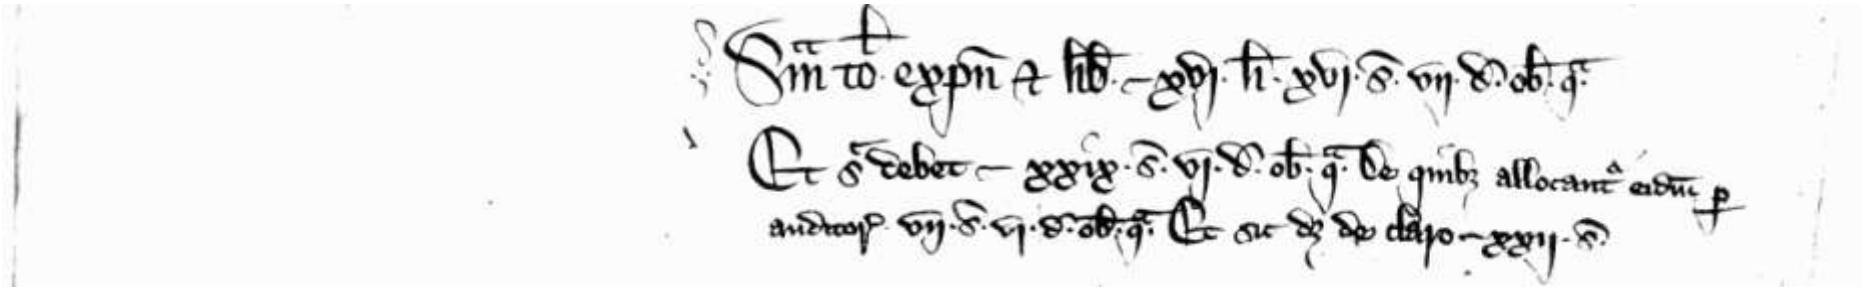 Sma tol expn & lib. – xvj. li. xvj. s. vij. d. ob. qa.
Et sa debet – xxix. s. vj. d. ob. qa. De quibz allocantr eidm p
auditor. vij. s. vj. d. ob. qa. Et sic dz de claro – xxij. s.